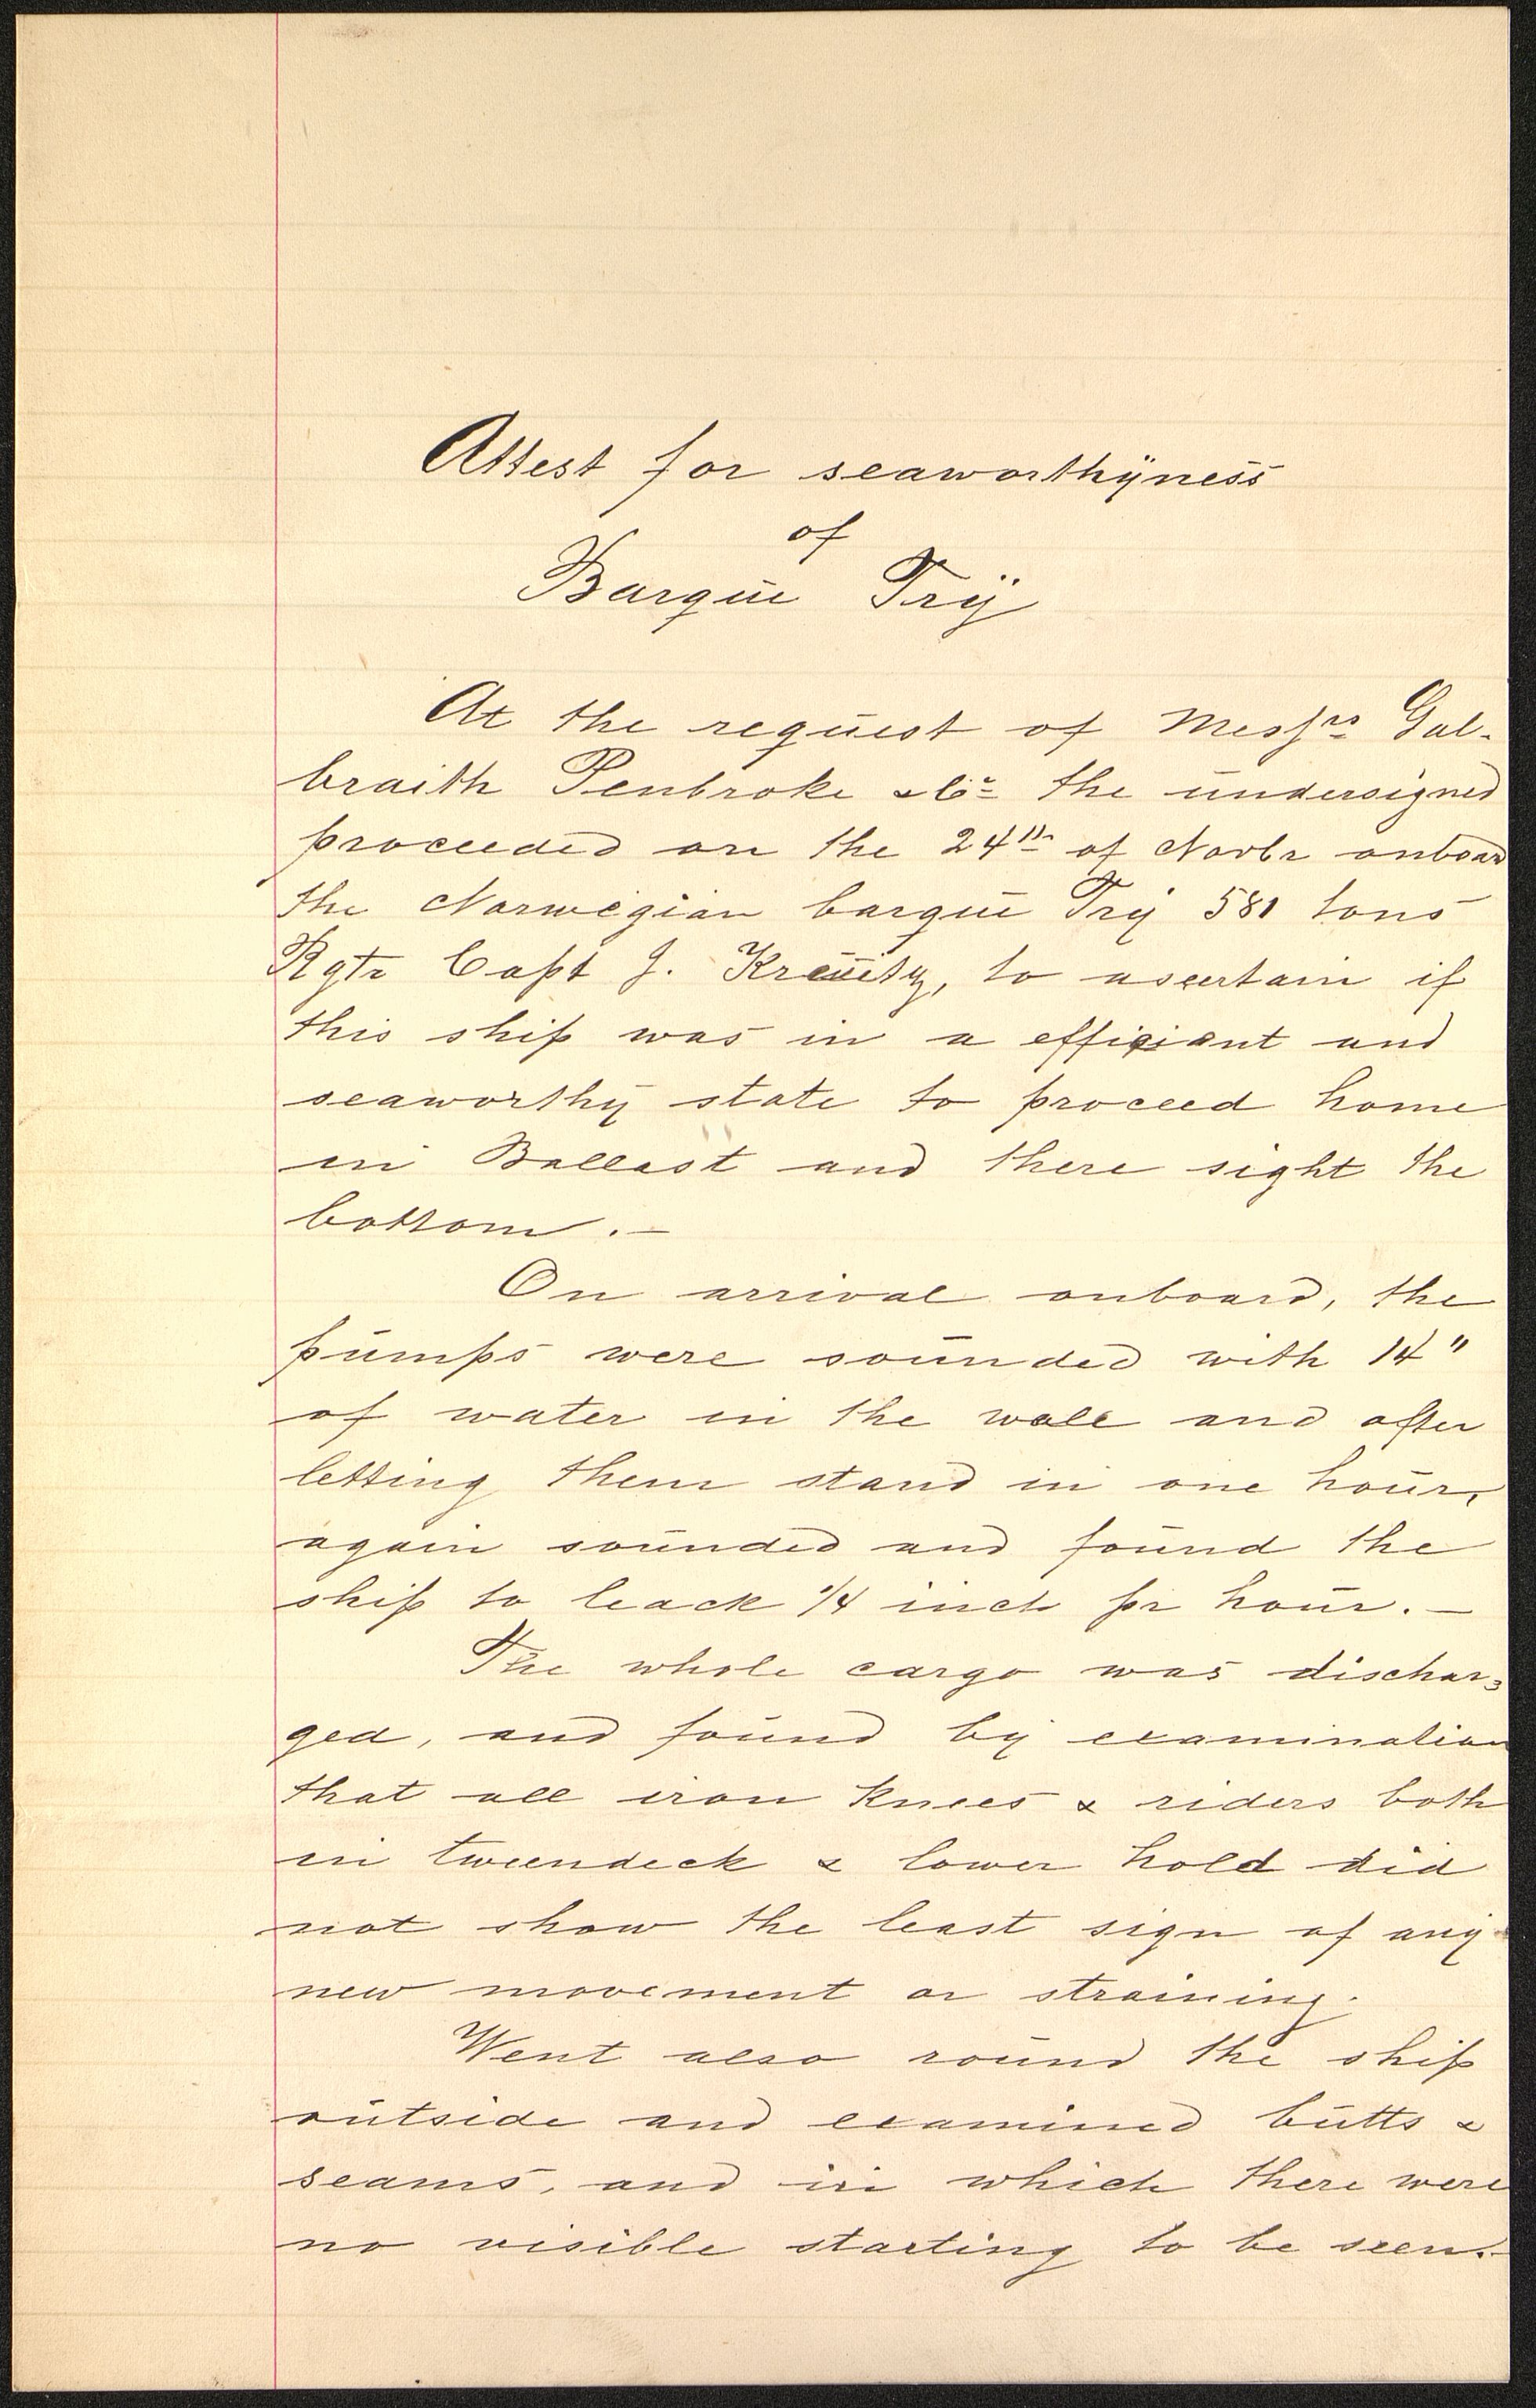 Attest for seaworthÿness
of
Barque Trÿ
At the request of Messrs Gal-
braith Penbroke & Co the undersigned
proceeded on the 24th of Novbr onboard
the Norwegian barque Trÿ 581 tons
Rgtr Capt J. to ascertain if
this ship was in a efficiant and
seaworthÿ state to proceed home
in Ballast and there sight the
bottom. —
On arrival onboard, the
pumps were sounded with 14"
of water in the well and after
letting them stand in one hour,
again sounded and found the
ship to leack 1/4 inch pr hour. —
The whole cargo was dischar=
ged, and found bÿ examination
that all iron knees & riders both
in tweendeck & lower hold did
not show the least sign of anÿ
new movement or straining.
Went also round the ship
outside and examined butts &
seams, and in which there were
no visible starting to be seen. —